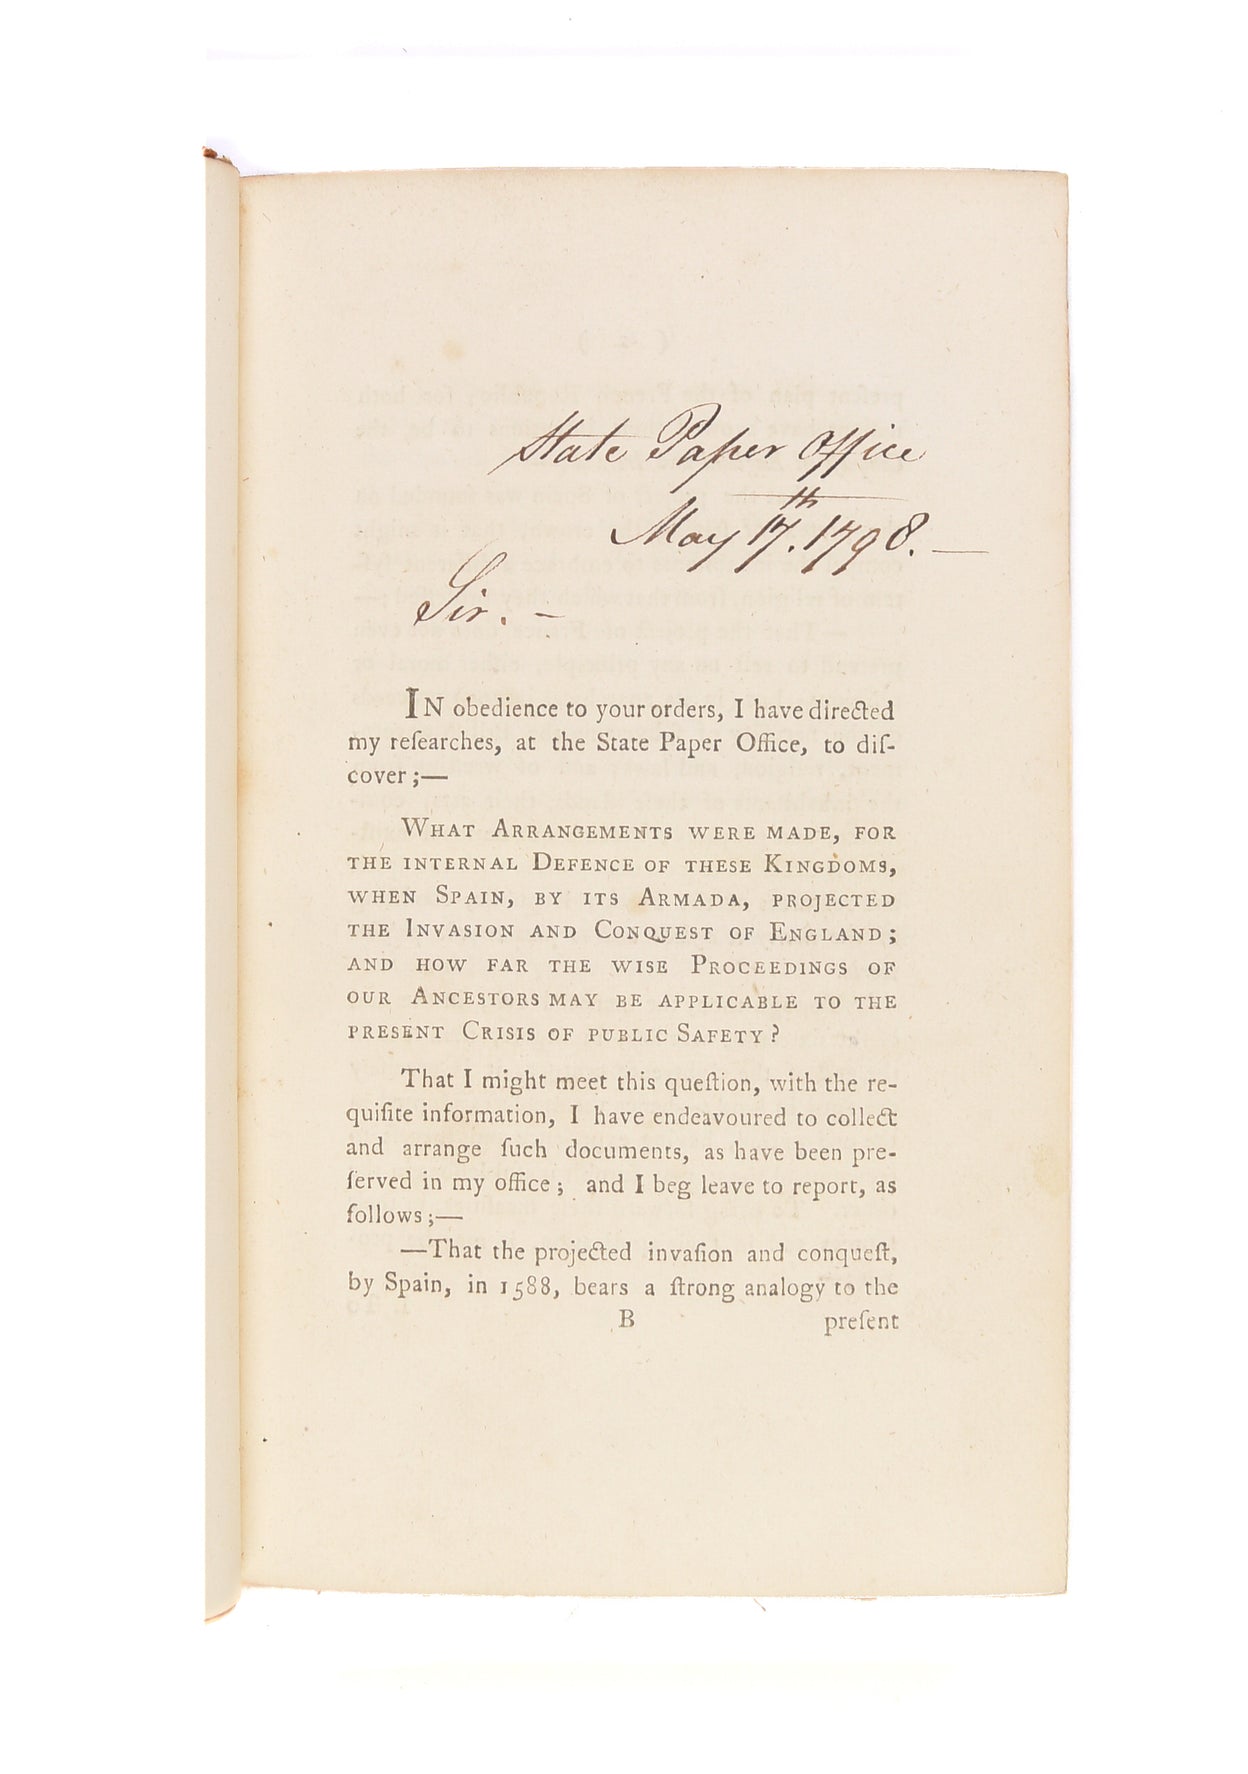 State Paper Office
May 17th. 1798. —
Sir. –
IN obedience to your orders, I have directed
my reſearches, at the State Paper Office, to diſ-
cover ;—
WHAT ARRANGEMENTS WERE MADE, FOR
THE INTERNAL DEFENCE OF THESE KINGDOMS,
WHEN SPAIN, BY ITS ARMADA, PROJECTED
THE INVASION AND CONQUEST OF ENGLAND ;
AND HOW FAR THE WISE PROCEEDINGS OF
OUR ANCESTORS MAY BE APPLICABLE TO THE
PRESENT CRISIS OF PUBLIC SAFETY ?
That I might meet this queſtion, with the re-
quiſite information, I have endeavoured to collect
and arrange ſuch documents, as have been pre-
ſerved in my office ; and I beg leave to report, as
follows ;—
—That the projected invaſion and conqueſt,
by Spain, in 1588, bears a ſtrong analogy to the
B preſent